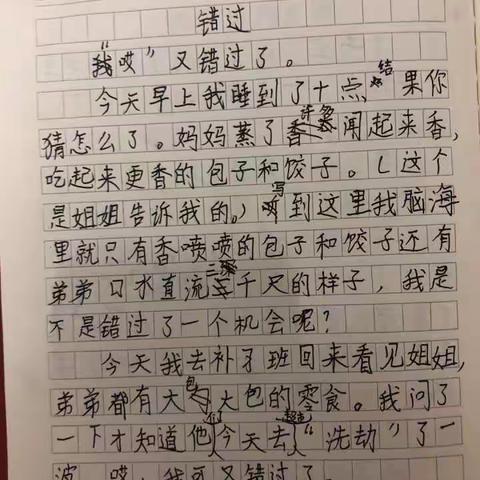 错过
“我哎”又错过了。
今天早上我睡到了十点结果你
猜怎么了。妈妈蒸了许多闻起来香,
吃起来更香的包子和饺子。(这个
是姐姐告诉我的。)写到这里我脑海
里就只有香喷喷的包子和饺子还有
弟弟口水直流三千尺的样子,我是
不是错过了一个机会呢?
今天我去补习班回来看见姐姐,
弟弟都有大包大包的零食。我问了
一下才知道他们今天去超市“洗劫”了一
波,哎,我可又错过了。